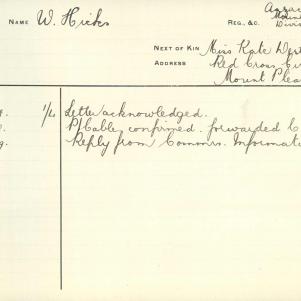 NAME W. Hicks
REG. &C. Mounted
Divis
NEXT OF KIN Miss Kate
ADDRESS Red Cross
Mount Plea
1/4 Letter acknowledged.
P/Cable confirmed. forwarded C
Reply from Commrs. Informat